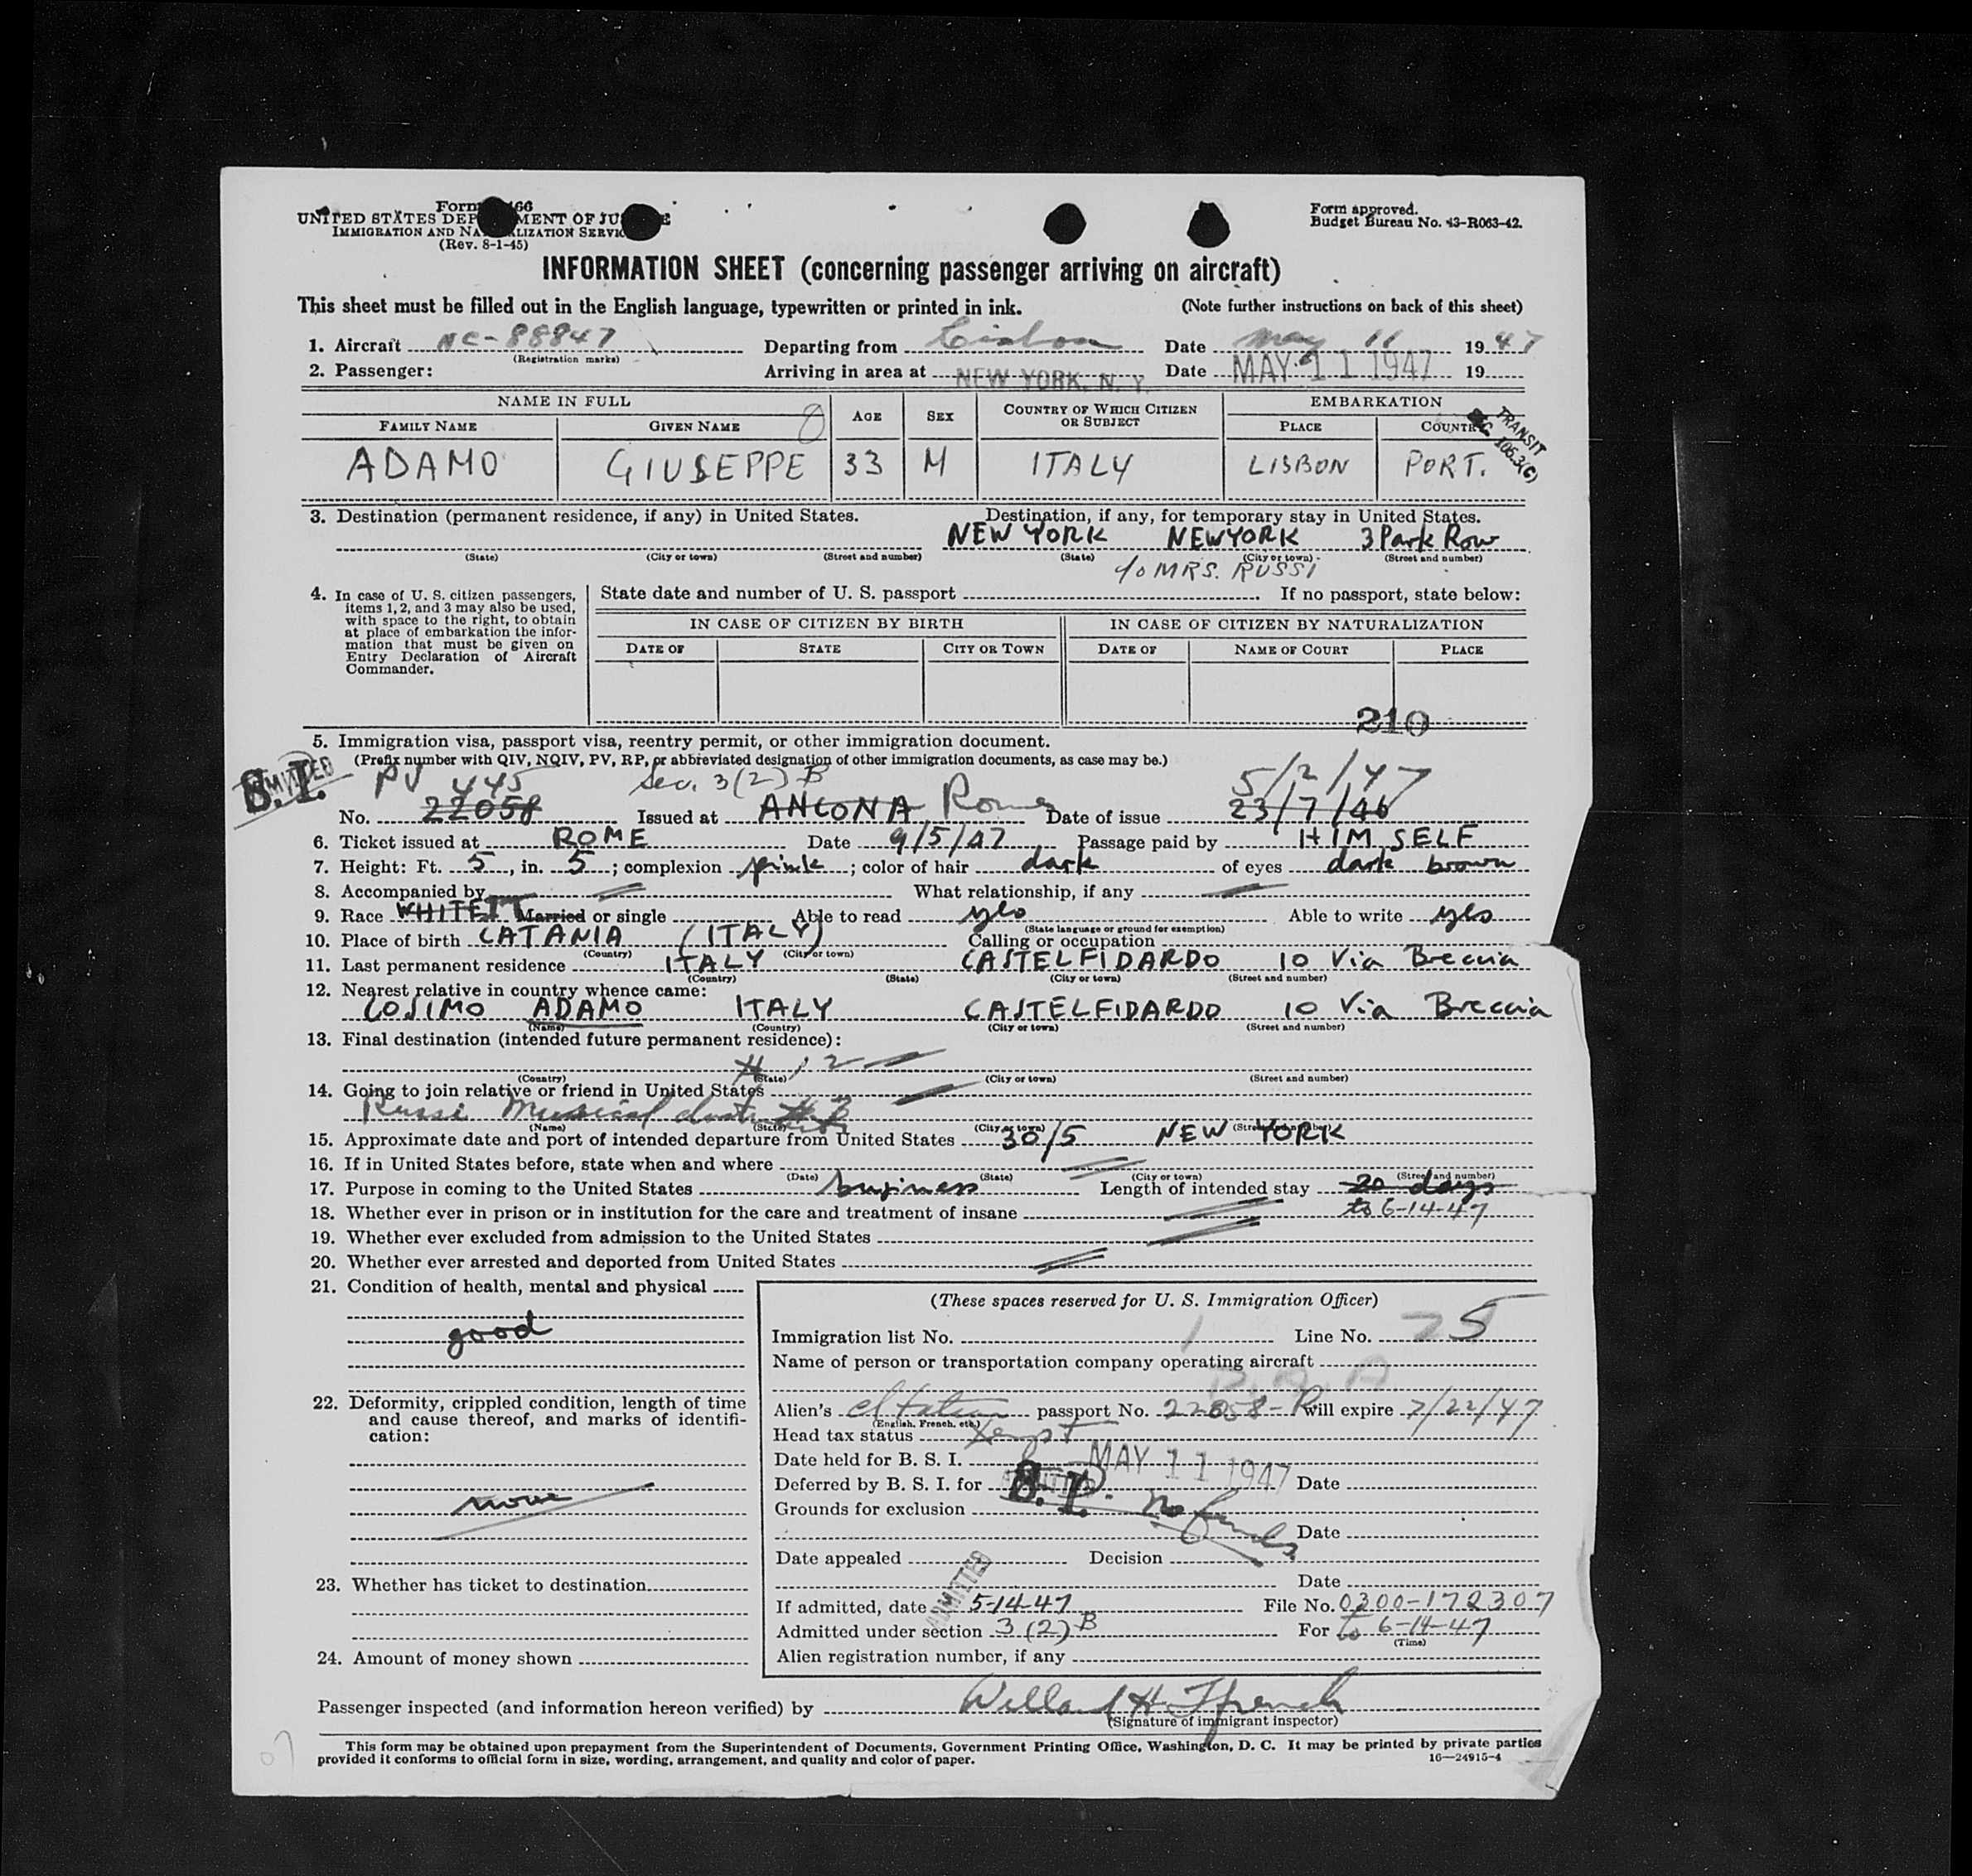 Form 466
UNITED STATES DEP MENT OF JU E
IMMIGRATION AND NA LIZATION SERVIC
(Rev. 8-1-45)
Form approved.
Budget Bureau No. 43-R063-42.
INFORMATION SHEET (concerning passenger arriving on aircraft)
This sheet must be filled out in the English language, typewritten or printed in ink. (Note further instructions on back of this sheet)
1. Aircraft NC-88847 Departing from Lisbon Date May 11 1947
(Registration marks)
2. Passenger: Arriving in area at NEW YORK, N. Y. Date MAY 11 1947 19
NAME IN FULL AGE SEX COUNTRY OF WHICH CITIZEN OR SUBJECT EMBARKATION
FAMILY NAME GIVEN NAME PLACE COUNTRY
TRANSIT
106.3(c)
ADAMO GIUSEPPE 33 M ITALY LISBON PORT.
3. Destination (permanent residence, if any) in United States. Destination, if any, for temporary stay in United States.
NEW YORK NEWYORK 3 Park Row
(State) (City or town) (Street and number) (State) (City or town) (Street and number)
c/o MRS. RUSSI
4. In case of U. S. citizen passengers, items 1, 2, and 3 may also be used, with space to the right, to obtain at place of embarkation the information that must be given on Entry Declaration of Aircraft Commander.
State date and number of U. S. passport If no passport, state below:
IN CASE OF CITIZEN BY BIRTH IN CASE OF CITIZEN BY NATURALIZATION
DATE OF STATE CITY OR TOWN DATE OF NAME OF COURT PLACE
210
5. Immigration visa, passport visa, reentry permit, or other immigration document.
(Prefix number with QIV, NQIV, PV, RP, or abbreviated designation of other immigration documents, as case may be.)
PV 445 Sec. 3(2) B 5/2/47
No. 22058 Issued at ANCONA Rome Date of issue 23/7/46
6. Ticket issued at ROME Date 9/5/47 Passage paid by HIMSELF
7. Height: Ft. 5, in. 5; complexion pink; color of hair dark of eyes dark brown
8. Accompanied by What relationship, if any
9. Race WHITE IT Married or single Able to read yes Able to write yes
(State language or ground for exemption)
10. Place of birth CATANIA (ITALY) Calling or occupation
(Country) (City or town)
11. Last permanent residence ITALY CASTELFIDARDO 10 Via Breccia
(Country) (State) (City or town) (Street and number)
12. Nearest relative in country whence came:
COSIMO ADAMO ITALY CASTELFIDARDO 10 Via Breccia
(Name) (Country) (City or town) (Street and number)
13. Final destination (intended future permanent residence):
# 12
(Country) (State) (City or town) (Street and number)
14. Going to join relative or friend in United States
Russi Musical
(Name) (State) (City or town) (Street and number)
15. Approximate date and port of intended departure from United States 30/5 NEW YORK
16. If in United States before, state when and where
(Date) (State) (City or town) (Street and number)
17. Purpose in coming to the United States business Length of intended stay 20 days
to 6-14-47
18. Whether ever in prison or in institution for the care and treatment of insane
19. Whether ever excluded from admission to the United States
20. Whether ever arrested and deported from United States
21. Condition of health, mental and physical
good
22. Deformity, crippled condition, length of time and cause thereof, and marks of identification:
none
23. Whether has ticket to destination
24. Amount of money shown
(These spaces reserved for U. S. Immigration Officer)
Immigration list No. 1 Line No. 5
Name of person or transportation company operating aircraft
P. A. A
Alien's passport No. 22058-P will expire 7/22/47
(English, French, etc.)
Head tax status Xempt
Date held for B. S. I. MAY 11 1947
Deferred by B. S. I. for Date
Grounds for exclusion no funds
Date
Date appealed Decision
ADMITTED
Date
If admitted, date 5-14-47 File No. 0300-172307
Admitted under section 3(2) B For to 6-14-47
(Time)
Alien registration number, if any
Passenger inspected (and information hereon verified) by Willard H. French
(Signature of immigrant inspector)
This form may be obtained upon prepayment from the Superintendent of Documents, Government Printing Office, Washington, D. C. It may be printed by private parties
provided it conforms to official form in size, wording, arrangement, and quality and color of paper. 16—24915-4